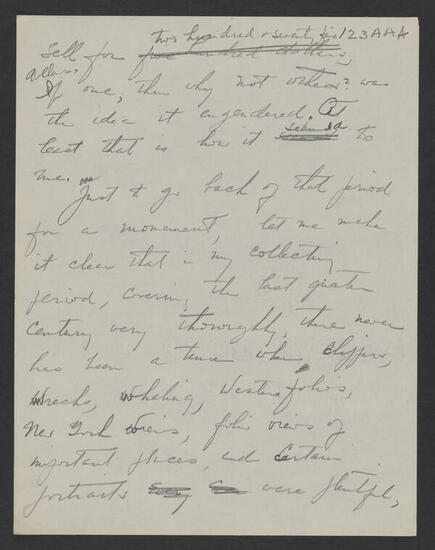 two hundred & seventy five 123AAA
sell for five hundred dollars,
dollars.
If one, then why not others? was
the idea it engendered. At
least that is how it seemed to
me.
Just to go back of that period
for a movement, let me make
it clear that in my collecting
period, covering the last quarter
century very thoroughly, there never
has been a time when Clippers,
Wrecks, Whaling, Western folios,
New York Views, folio views of
important places, and certain
portraits were plentiful,